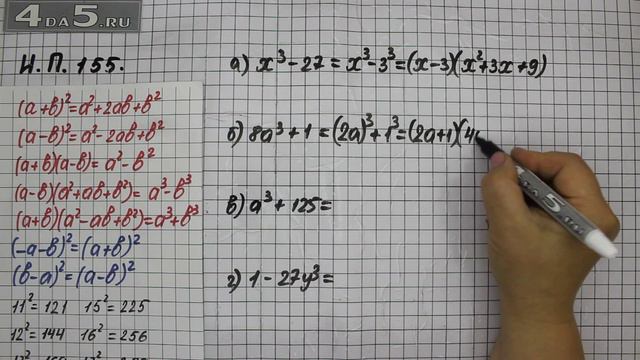 4DA5.RU
И.П. 155.
(a+b)²=a²+2ab+b²
(a-b)²=a²-2ab+b²
(a+b)(a-b)=a²-b²
(a-b)(a²+ab+b²)=a³-b³
(a+b)(a²-ab+b²)=a³+b³
(-a-b)²=(a+b)²
(b-a)²=(a-b)²
11²=121 15²=225
12²=144 16²=256
а) x³-27=x³-3³=(x-3)(x²+3x+9)
б) 8a³+1=(2a)³+1³=(2a+1)(4
в) a³+125=
г) 1-27y³=